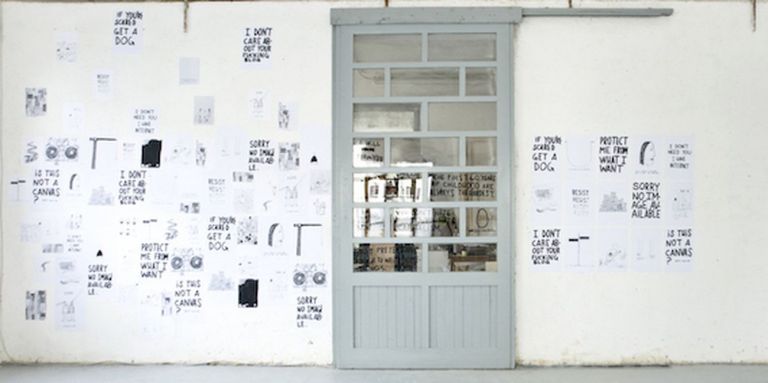 IF YOURE
SCARED
GET A
DOG
I DON'T
CARE AB-
OUT YOUR
FUCKING
BLOG
I DON'T
NEED YOU
I HAVE
INTERNET
SORRY
NO IMAG
AVAILAB-
LE.
IS THIS
NOT A
CANVAS
?
I DON'T
CARE AB-
OUT YOUR
FUCKING
BLOG
IF YOURE
SCARED
GET A
DOG
PROTECT
ME FROM
WHAT I
WANT
SORRY
NO IMAG
AVAILAB-
LE.
IS THIS
NOT A
CANVAS
?
SORRY
NO IMAG
AVAILAB-
LE.
THE FIRST 40 YEARS
OF CHILDHOOD ARE
ALWAYS THE HARDEST
IF YOURE
SCARED
GET A
DOG
PROTECT
ME FROM
WHAT I
WANT
I DON'T
NEED YOU
I HAVE
INTERNET
SORRY
NO IM-
AGE AV-
AILABLE
I DON'T
CARE AB-
OUT YOUR
FUCKING
BLOG
IS THIS
NOT A
CANVAS
?